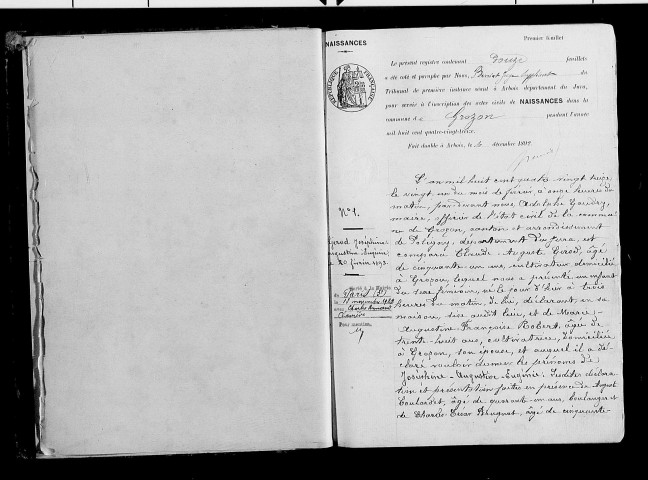 NAISSANCES
Premier feuillet
Le présent registre contenant Douze feuillets
a été coté et paraphé par Nous, juge suppléant du
Tribunal de première instance séant à Arbois département du Jura,
pour servir à l'inscription des actes civils de NAISSANCES dans la
commune de Grozon pendant l'année
mil huit cent quatre-vingt-treize.
Fait double à Arbois, le décembre 1892
RÉPUBLIQUE FRANÇAISE
N° 1.
Girod Joséphine
Augustine Eugénie
le 20 février 1893.
Marié à la Mairie
de Paris
le novembre 19
avec Charles
Pour mention,
L'an mil huit cent quatre vingt treize
le vingt un du mois de février, à onze heures du
matin, par devant nous Adolphe
maire, officier de l'état civil de la commu-
ne de Grozon, canton et arrondissement
de Poligny, département du Jura, est
comparu Claude Auguste Girod, âgé
de cinquante un ans, cultivateur domicilié
à Grozon, lequel nous a présenté un enfant
du sexe féminin, né le jour d'hier à trois
heures du matin, de lui, déclarant, en sa
maison, sise audit lieu, et de Marie
Augustine Françoise Robert, âgée de
trente huit ans, cultivatrice, domiciliée
à Grozon, son épouse, et auquel il a dé-
claré vouloir donner les prénoms de
Joséphine Augustine Eugénie. Ladite déclara-
tion et présentation faites en présence de August
âgé de quarante un ans, boulanger et
de Charles César âgé de cinquante-